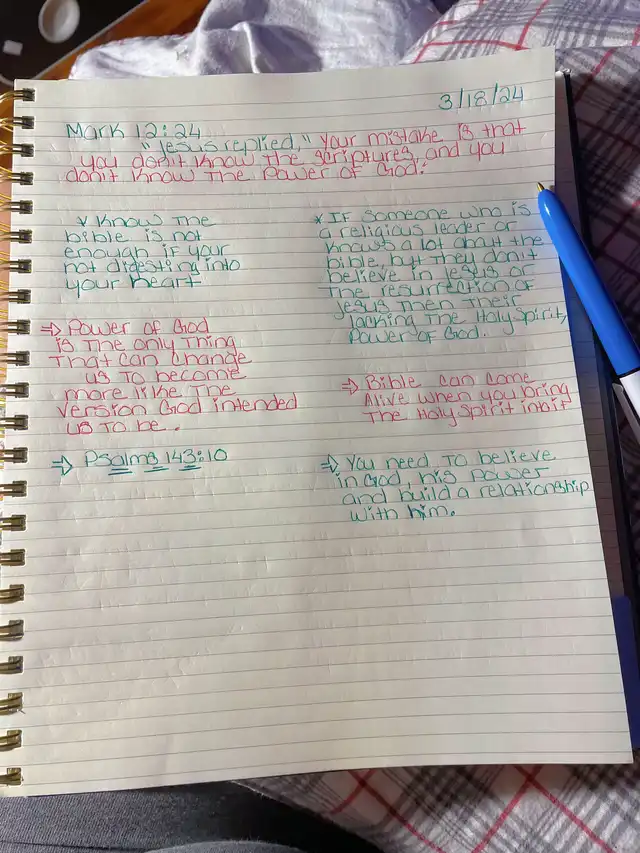 3/18/24
Mark 12:24
"Jesus replied," Your mistake is that
you don't know the scriptures, and you
don't know the power of God.
* Know the
bible is not
enough if your
not digesting into
your heart
⇒ Power of God
is the only thing
that can change
us to become
more like the
version God intended
us to be.
⇒ Psalms 143:10
* If someone who is
a religious leader or
knows a lot about the
bible, but they don't
believe in Jesus or
the resurrection of
Jesus then their
lacking the Holy Spirit,
Power of God.
⇒ Bible can come
Alive when you bring
the Holy Spirit in
⇒ You need to believe
in God, his power
and build a relationship
with him.